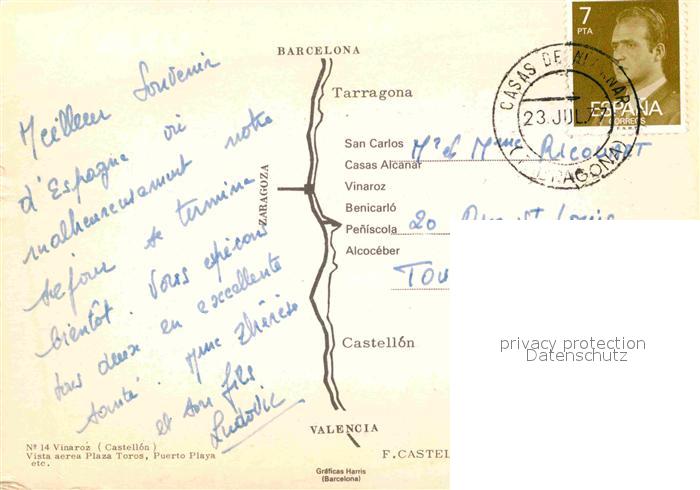 Meilleur Souvenir
d'Espagne où notre
malheureusement
séjour se termine
bientôt. Vous espérons
tous deux en excellente
santé. Mme Thérèse
et son fils
Ludovic
BARCELONA
Tarragona
San Carlos
Casas Alcanar
Vinaroz
Benicarló
Peñíscola
Alcocéber
ZARAGOZA
Castellón
VALENCIA
7
PTA
ESPAÑA
CORREOS
CASAS DE ALCANAR
23 JUL. 77
(TARRAGONA)
Mr et Mme RICOURT
20 Rue St Louis
TOU
F.CASTEL
Nº 14 Vinaroz (Castellón)
Vista aerea Plaza Toros, Puerto Playa
etc.
Gráficas Harris
(Barcelona)
privacy protection
Datenschutz